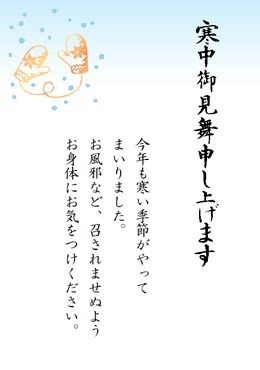 寒中御見舞申し上げます
今年も寒い季節がやって
まいりました。
お風邪など、召されませぬよう
お身体にお気をつけください。